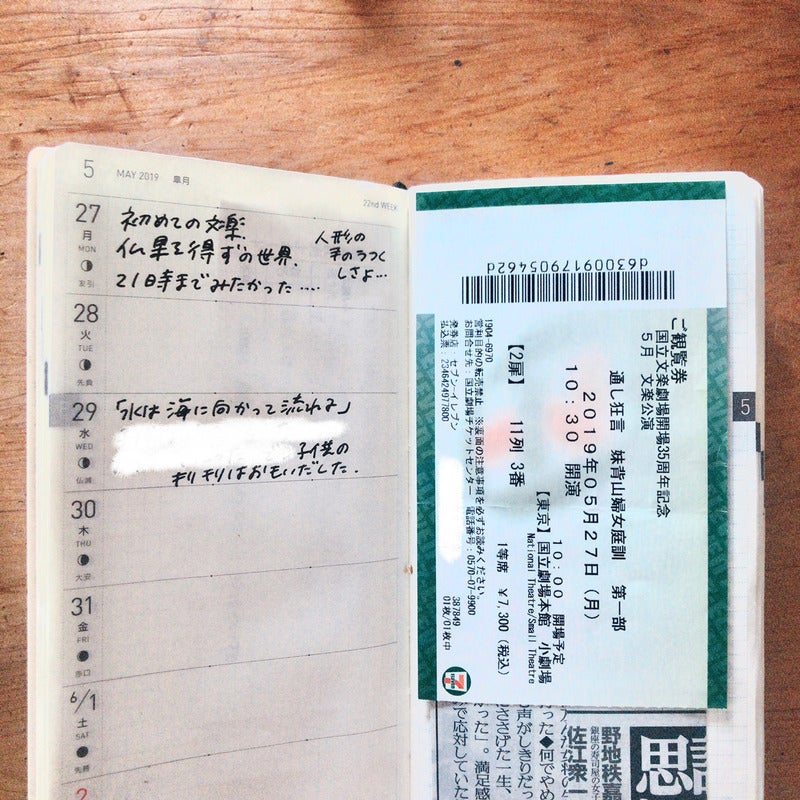 5 MAY 2019 皐月
22nd WEEK
27
月
MON
友引
初めての文楽.
仏果を得ずの世界.
21日寺までみたかった....
人形の
手のうつく
しさよ...
28
火
TUE
先負
29
水
WED
仏滅
「水は海に向かって流れる」
子供の
キリキリはおもいだした.
30
木
THU
大安
31
金
FRI
赤口
6/1
土
SAT
先勝
2
d6300091790546​2d
ご観覧券
国立文楽劇場開場35周年記念
5月 文楽公演
通し狂言 妹背山婦女庭訓 第一部
2019年05月27日(月)
10:30 開演
10:00 開場予定
【東京】国立劇場本館 小劇場
National Theatre/Small Theatre
【2扉】 11列 3番
1等席 ¥7,300(税込)
1904-6970
営利目的の転売禁止 ※裏面の注意事項を必ずお読みください。
お問合せ先:国立劇場チケットセンター 電話番号:0570-07-9900
発券店 セブン-イレブン
払込票:2346424977800
387849
01枚/01枚中
5
野地秩嘉
銀座の寿司屋の女子
佐江衆一
思